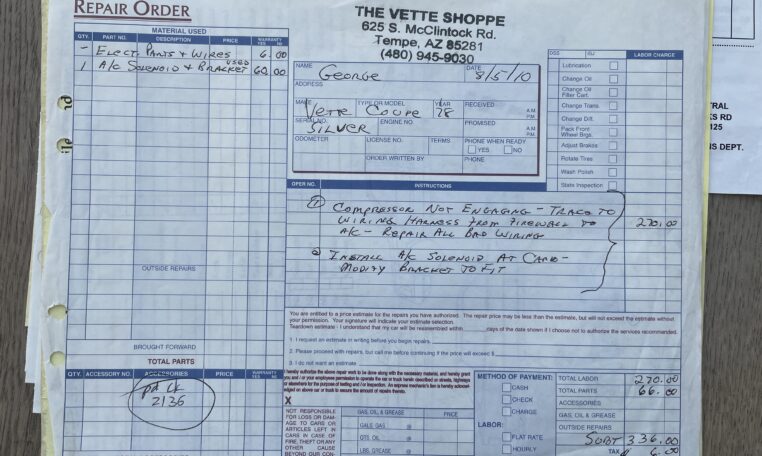 REPAIR ORDER
THE VETTE SHOPPE
625 S. McClintock Rd.
Tempe, AZ 85281
(480) 945-9030
MATERIAL USED
QTY. PART NO. DESCRIPTION PRICE WARRANTY
YES NO
- ELECT. PARTS & WIRES 6.00
1 A/C SOLENOID & BRACKET USED 60.00
OUTSIDE REPAIRS
BROUGHT FORWARD
TOTAL PARTS
QTY. ACCESSORY NO. ACCESSORIES PRICE WARRANTY
YES NO
pd ck
2136
NAME George DATE 8/5/10
ADDRESS
MAKE Vette TYPE OR MODEL Coupe YEAR 78 RECEIVED A.M.
P.M.
SERIAL NO. SILVER ENGINE NO. PROMISED A.M.
P.M.
ODOMETER LICENSE NO. TERMS PHONE WHEN READY
YES NO
ORDER WRITTEN BY PHONE
LABOR CHARGE
Lubrication
Change Oil
Change Oil
Filter Cart.
Change Trans.
Change Diff.
Pack Front
Wheel Brgs.
Adjust Brakes
Rotate Tires
Wash Polish
State Inspection
OPER NO. INSTRUCTIONS
1 COMPRESSOR NOT ENGAGING - TRACE TO
WIRING HARNESS FROM FIREWALL TO
A/C - REPAIR ALL BAD WIRING
270.00
2 INSTALL A/C SOLENOID AT CARB-
MODIFY BRACKET TO FIT
You are entitled to a price estimate for the repairs you have authorized. The repair price may be less than the estimate, but will not exceed the estimate without
your permission. Your signature will indicate your estimate selection.
Teardown estimate - I understand that my car will be reassembled within days of the date shown if I choose not to authorize the services recommended.
1. I request an estimate in writing before you begin repairs.
2. Please proceed with repairs, but call me before continuing if the price will exceed $
3. I do not want an estimate
I hereby authorize the above repair work to be done along with the necessary material, and hereby grant
you and / or your employees permission to operate the car or truck herein described on streets, highways
or elsewhere for the purpose of testing and / or inspection. An express mechanic's lien is hereby acknowl-
edged on above car or truck to secure the amount of repairs thereto.
X
NOT RESPONSIBLE
FOR LOSS OR DAM-
AGE TO CARS OR
ARTICLES LEFT IN
CARS IN CASE OF
FIRE, THEFT OR ANY
OTHER CAUSE
BEYOND OUR CON-
GAS, OIL & GREASE PRICE
GALS. GAS @
QTS. OIL @
LBS. GREASE @
METHOD OF PAYMENT:
CASH
CHECK
CHARGE
LABOR:
FLAT RATE
HOURLY
TOTAL LABOR 270.00
TOTAL PARTS 66.00
ACCESSORIES
GAS, OIL & GREASE
OUTSIDE REPAIRS
SUBT 336.00
TAX 6.00
TRAL
KS RD
125
IS DEPT.